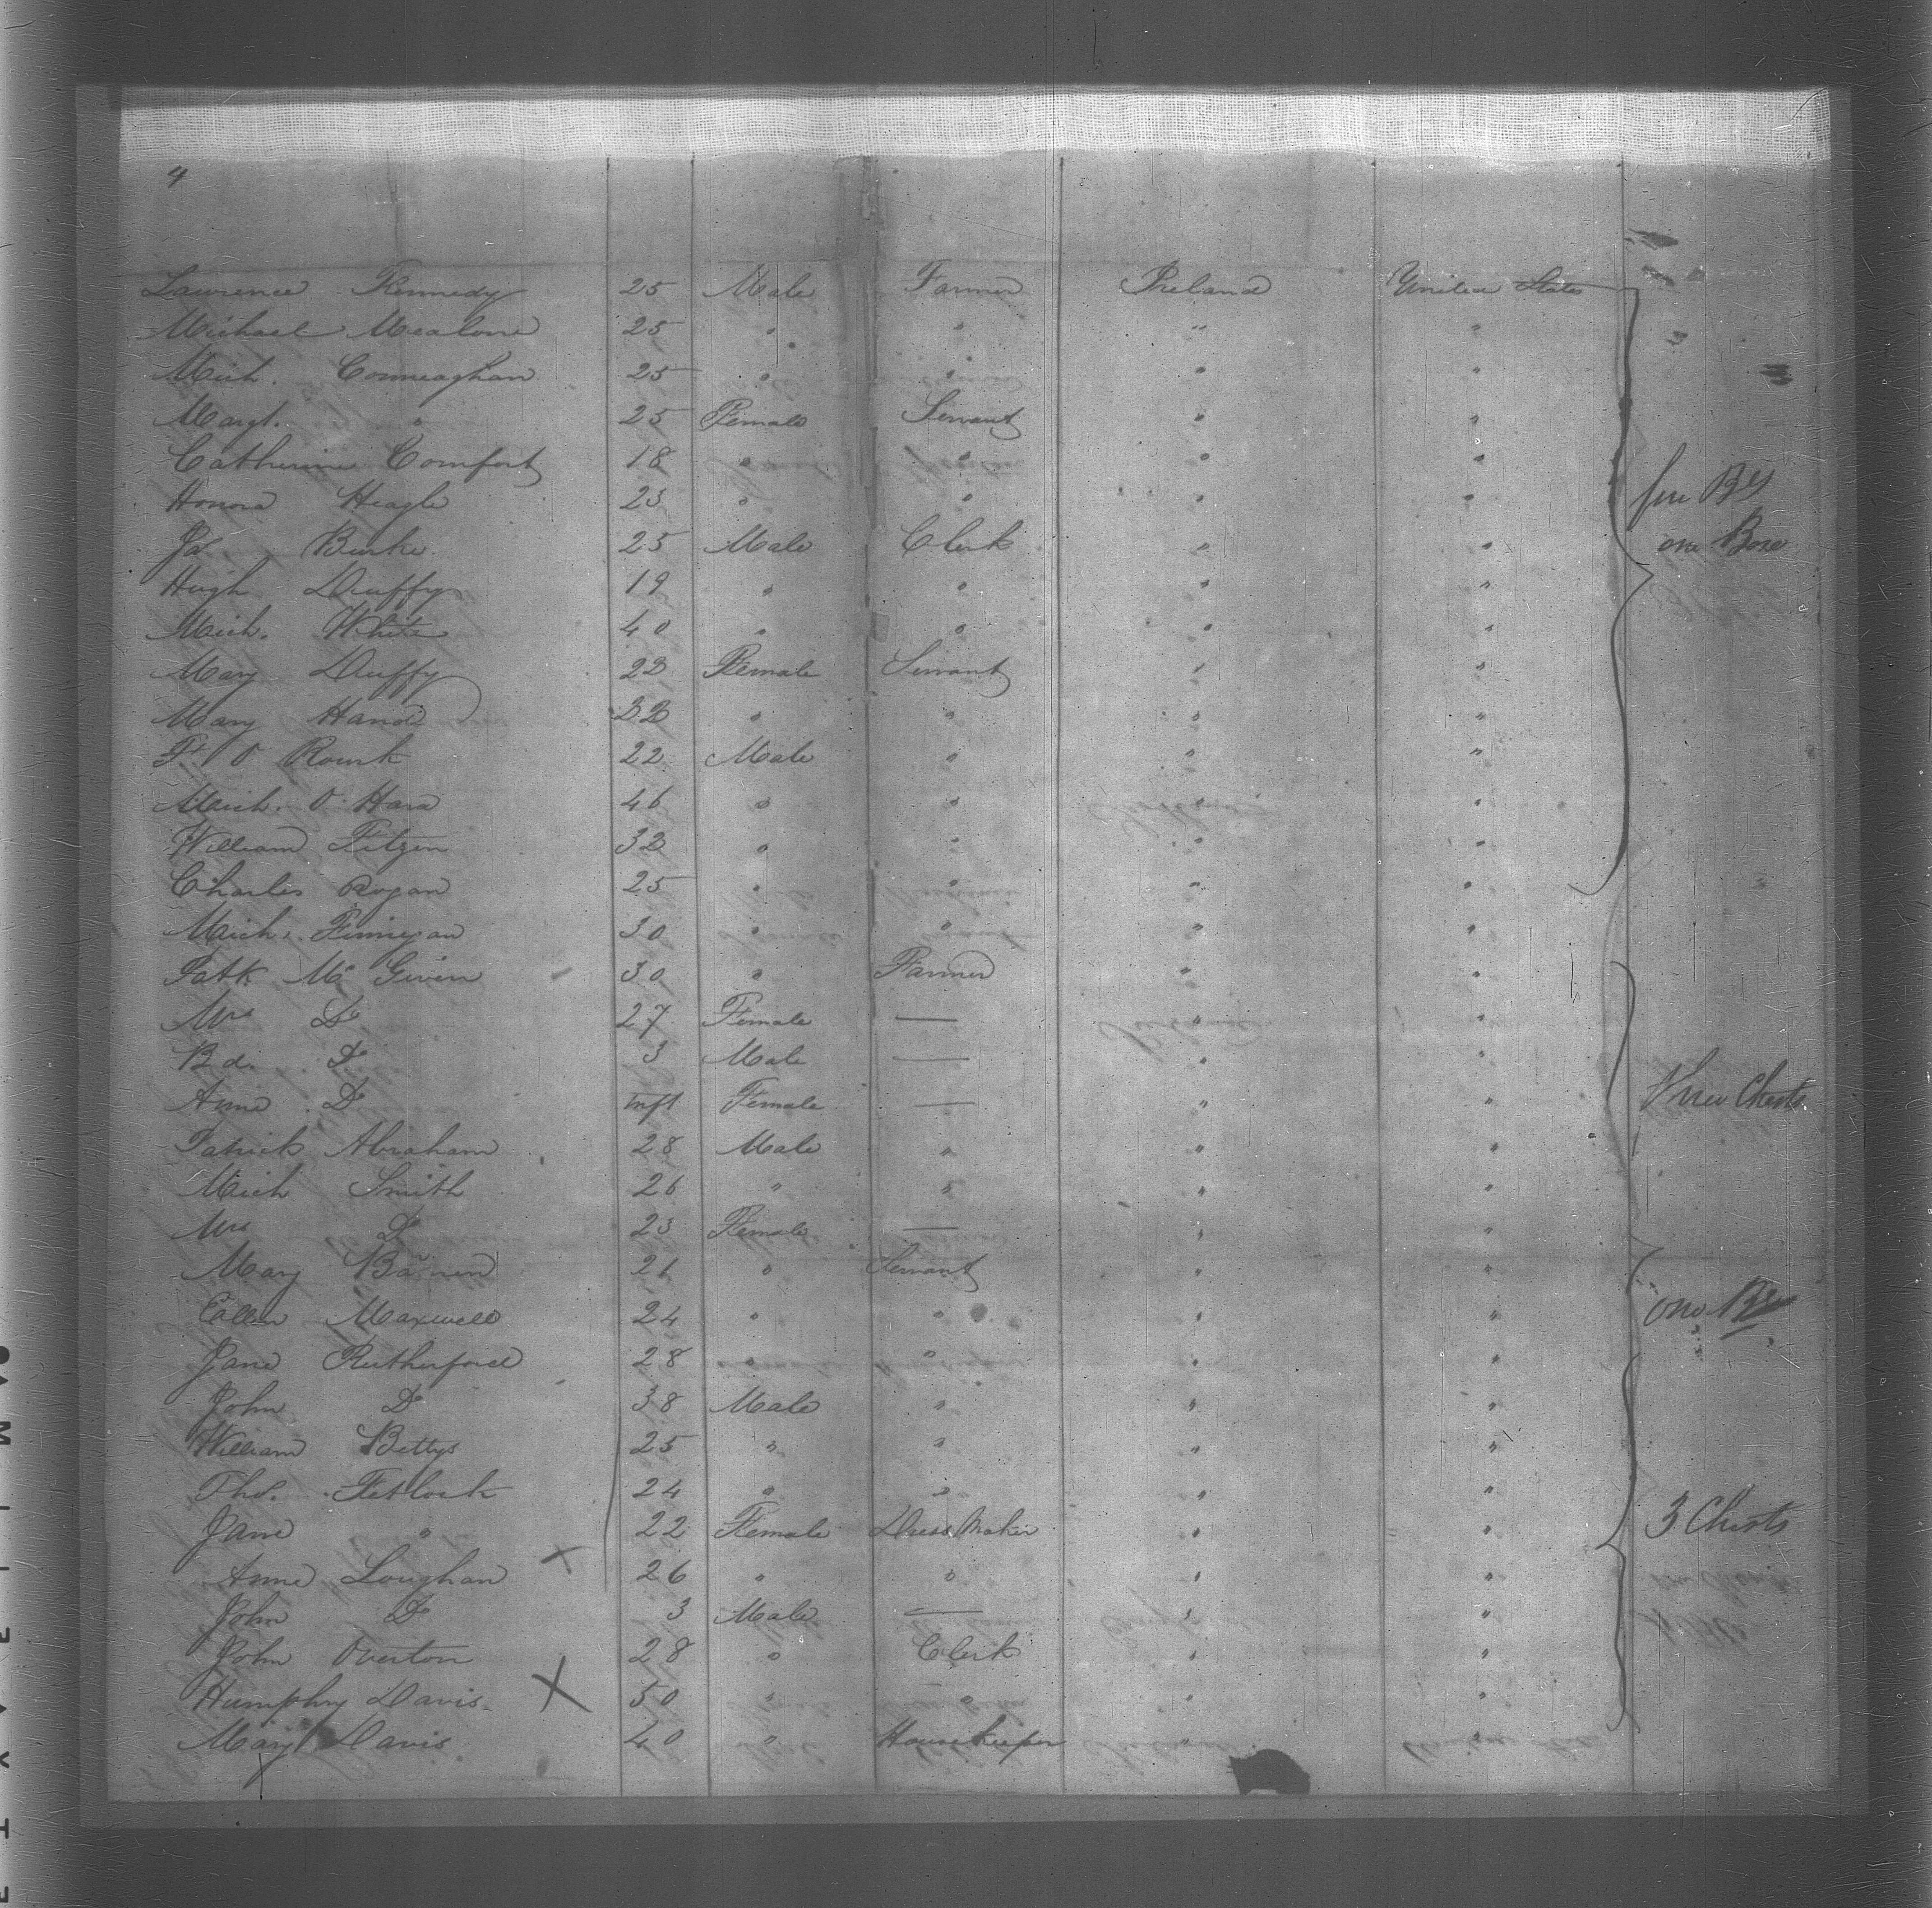 4
Lawrence Kennedy 25 Male Farmer Ireland United States
Michael Mealone 25 " " " "
Mich. Conneaghan 25 " " " "
Margt. " 25 Female Servant " "
Catherine Comfort 18 " " " "
Honora Heagle 23 " " " "
Burke 25 Male Clerk " "
Hugh Duffy 19 " " " "
Mich. White 40 " " " "
Mary Duffy 22 Female Servant " "
Mary " " " "
O Rourk 22 Male " " "
Mich. O'Hara 46 " " " "
William 32 " " " "
Charles Rogan 25 " " " "
Mich. Finnegan 30 " " " "
Patk Mc Given 30 " Farmer " "
Mrs Do 27 Female — " "
Bd. Do 3 Male — " "
Anne Do Inft Female — " "
Patrick Abraham 28 Male " " "
Mich Smith 26 " " " "
Mrs Do 23 Female — " "
Mary 21 " Servant " "
Ellen Maxwell 24 " " " "
Jane Rutherford 28 " " " "
John Do 38 Male " " "
William Bettys 25 " " " "
Thos. Fetlock 24 " " " "
Jane " 22 Female Dress Maker " "
Anne Loughan 26 " " " "
John Do 3 Male — " "
John Overton 28 " Clerk " "
Humphry Davis X 50 " " " "
Mary Davis 40 " Housekeeper " "
one Box
Chests
one
3 Chests